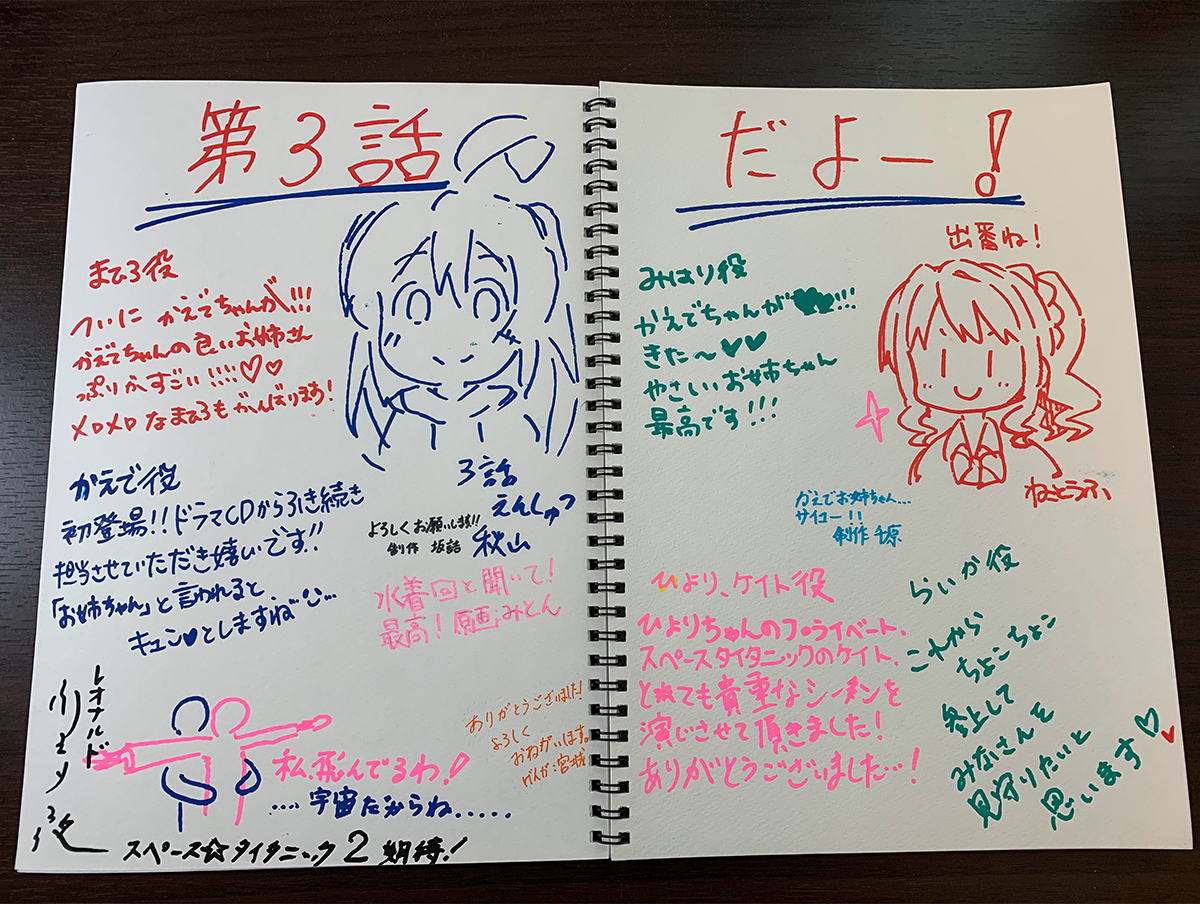 第3話
だよー!
まひろ役
ついに かえでちゃんが!!!
かえでちゃんの良いお姉さん
っぷりがすごい!!!!♡♡
メロメロなまひろもがんばります!
かえで役
初登場!!ドラマCDから引き続き
担当させていただき嬉しいです!!
「お姉ちゃん」と言われると、
キュン♥としますね
3話
えんしゅつ
秋山
よろしくお願いします!!
制作 坂詰
水着回と聞いて!
最高!原画みとん
レオナルド
役
私、飛んでるわ!
....宇宙だからね.....
スペース☆タイタニック2期待!
ありがとうございました!
よろしく
おねがいします。
げんが:宮城
出番ね!
みはり役
かえでちゃんが!!!
きた〜♥♥
やさしいお姉ちゃん
最高です!!!
ねことうふ
かえでお姉ちゃん...
サイコー!!
制作 千原
ひより、ケイト役
ひよりちゃんのプライベート、
スペースタイタニックのケイト、
とても貴重なシーンを
演じさせて頂きました!
ありがとうございました…!
らいか役
これから
ちょこちょこ
参上して
みなさんを
見守りたいと
思います♡♥